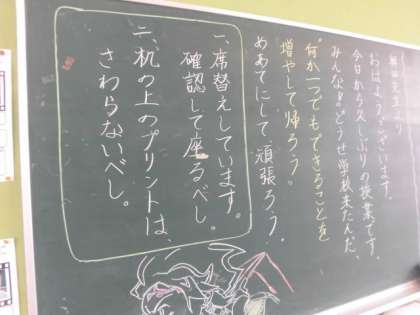 おはようございます。
今日から久しぶりの授業です。
みんな、どうせ学校来たんだ、
"何か一つでもできることを
増やして帰ろう。"
めあてにして、頑張ろう。
一、席替えしています。
確認して座るべし。
二、机の上のプリントは、
さわらないべし。